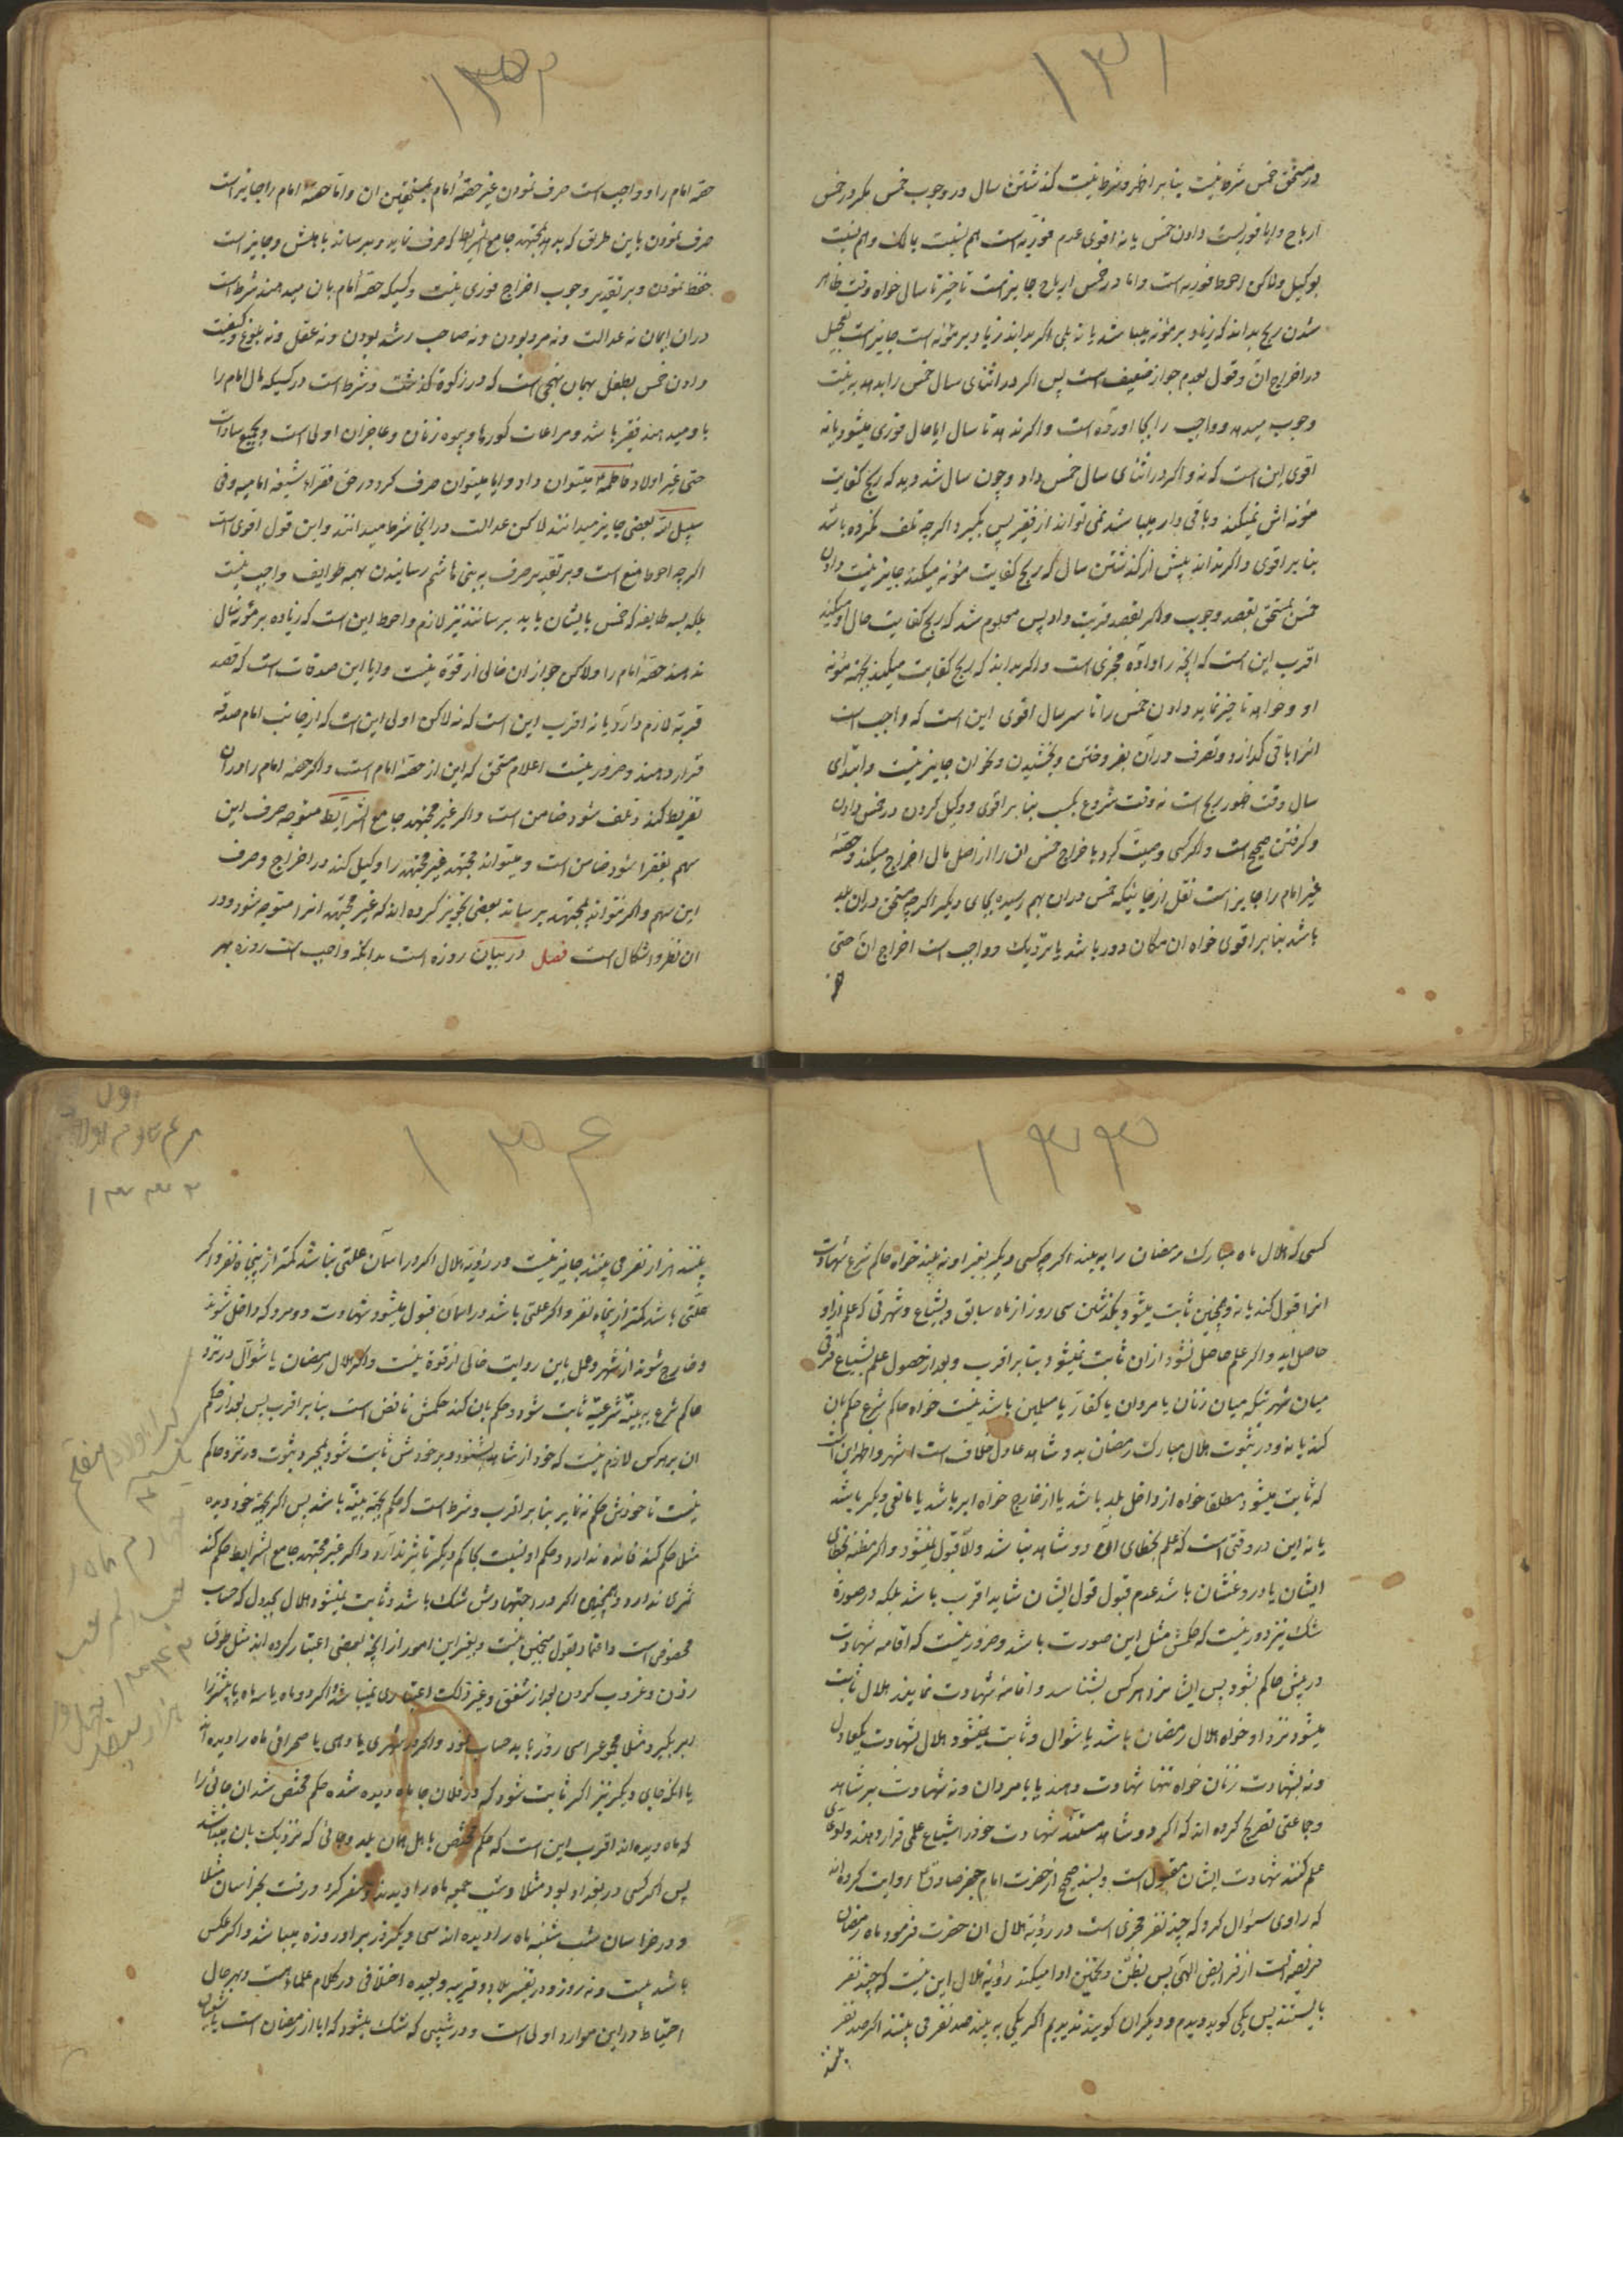 ۱۳۱
در مستحق خمس شرط نیست بنا بر اظهر و شرط نیست گذشتن سال در وجوب خمس مگر در خمس
ارباح و ایا فوریست دادن خمس یا نه اقوی عدم فوریه است هم نسبت بمالک و هم نسبت
بوکیل ولاکن احوط فوریه است و اما در خمس ارباح جایز است تاخیر تا سال خواه وقت ظاهر
شدن ربح بداند که زیاد بر مؤنه میباشد یا نه بلی اگر بداند زیاد بر مؤنه است جایز است تعجیل
در اخراج ان و قول بعدم جواز ضعیف است پس اگر در اثنای سال خمس را بدهد به نیت
وجوب میدهد و واجب را بجا اورده است و اگر ندهد تا سال ایا حال فوری میشود یا نه
اقوی این است که نه و اگر در اثنای سال خمس داد و چون سال شد دید که ربح کفایت
مؤنه اش نمیکند و باقی دار میباشد نمی تواند از فقیر پس بگیرد اگرچه تلف نکرده باشد
بنا بر اقوی و اگر نداند پیش از گذشتن سال که ربح کفایت مؤنه میکند جایز نیست دادن
خمس بمستحق بقصد وجوب و اگر بقصد قربت داد پس معلوم شد که ربح کفایت حال او میکند
اقرب این است که انچه را داده مجزی است و اگر بداند که ربح کفایت میکند بجهة مؤنه
او و خواهد تاخیر نماید دادن خمس را تا سر سال اقوی این است که واجب است
انرا باقی گذارد و تصرف در آن بفروختن و بخشیدن و نحو ان جایز نیست و ابتدای
سال وقت ظهور ربح است نه وقت شروع بکسب بنا بر اقوی و وکیل کردن در خمس دادن
و گرفتن صحیح است و اگر کسی وصیت کرد باخراج خمس ان را از اصل مال اخراج میکند و حصهٔ
غیر امام را جایز است نقل از جائیکه خمس در ان بهم رسیده بجای دیگر اگرچه مستحق در ان بلد
باشد بنا بر اقوی خواه ان مکان دور باشد یا نزدیک و واجب است اخراج ان حتی
۱۳۲
حصهٔ امام را و واجب است صرف نمودن غیر حصهٔ امام بمستحقین ان و اما حصهٔ امام را جایز است
صرف نمودن باین طریق که بدهد بمجتهد جامع الشرایط که صرف نماید و برساند باهلش و جایز است
حفظ نمودن و بر تقدیر وجوب اخراج فوری نیست و کسیکه حصهٔ امام بان میدهند شرط است
در ان ایمان نه عدالت و نه مرد بودن و نه صاحب رشد بودن و نه عقل و نه بلوغ و کیفیت
دادن خمس بطفل بهمان نهجی است که در زکوة گذشت و شرط است در کسیکه مال امام را
باو میدهند فقیر باشد و مراعات کورها و بیوه زنان و عاجزان اولی است و بجمیع سادات
حتی غیر اولاد فاطمه ۴ میتوان داد و ایا میتوان صرف کرد در حق فقراء شیعه امامیه و فی
سبیل الله بعضی جایز میدانند لاکن عدالت در اینجا شرط میدانند و این قول اقوی است
اگرچه احوط منع است و بر تقدیر صرف به بنی هاشم رسانیدن بهمه طوایف واجب نیست
بلکه بسه طایفه که خمس بایشان باید برسانند نیز لازم و احوط این است که زیاده بر مؤنه سال
ندهند حصهٔ امام را ولاکن جواز ان خالی از قوة نیست و ایا این صدقات است که قصد
قربة لازم دارد یا نه اقرب این است که نه لاکن اولی این است که از جانب امام صدقه
قرار دهند و ضرور نیست اعلام مستحق که این از حصهٔ امام است و اگر حصهٔ امام را در ان
تفریط کند و تلف شود ضامن است و اگر غیر مجتهد جامع الشرایط متوجه صرف این
سهم بفقرا شود ضامن است و میتواند مجتهد غیر مجتهد را وکیل کند در اخراج و صرف
این سهم و اگر نتواند بمجتهد برساند بعضی تجویز کرده اند که غیر مجتهد انرا متوجه شود و در
ان نظر و اشکال است فصل در بیان روزه است بدانکه واجب است روزه بهر
۱۳۳
کسی که هلال ماه مبارک رمضان را به بیند اگرچه کسی دیگر بغیر او نه بیند خواه حاکم شرع شهادت
انرا قبول کند یا نه و همچنین ثابت میشود بگذشتن سی روز از ماه سابق و بشیاع و شهرتی که علم از او
حاصل اید و اگر علم حاصل نشود از ان ثابت نمیشود بنا بر اقرب و بعد از حصول علم بشیاع فرقی
میان شهرتیکه میان زنان یا مردان یا کفار یا مسلمین باشد نیست خواه حاکم شرع حکم بان
کند یا نه و در ثبوت هلال مبارک رمضان بدو شاهد عادل خلاف است اشهر و اظهر این است
که ثابت میشود مطلقا خواه از داخل بلد باشد یا از خارج خواه ابر باشد یا مانعی دیگر باشد
یا نه این در وقتی است که علم بخطای ان دو شاهد نباشد والا قبول نمیشود و اگر مظنه بخطای
ایشان یا دروغشان باشد عدم قبول قول ایشان شاید اقرب باشد بلکه در صورة
شک نیز دور نیست که حکمش مثل این صورت باشد و ضرور نیست که اقامه شهادت
در پیش حاکم بشود پس ایشا نزد هر کس بشناسد و اقامهٔ شهادت نمایند هلال ثابت
میشود نزد او خواه هلال رمضان باشد یا شوال و ثابت نمیشود هلال بشهادت یکعادل
و نه بشهادت زنان خواه تنها شهادت دهند یا با مردان و نه شهادت بر شاهد
و جماعتی تصریح کرده اند که اگر دو شاهد مستند شهادت خود را شیاع علمی قرار دهند و دعوی
علم کنند شهادت ایشان مقبول است و بسند صحیح از حضرت امام جعفر صادق ع روایت کرده اند
که راوی سئوال کرد که چند نفر مجزی است در رؤیة هلال ان حضرت فرمود ماه رمضان
فریضه است از فرایض الهی پس بظن و تخمین ادا میکند رؤیة هلال این نیست که چند نفر
بایستند پس یکی گوید دیدم و دیگران گویند ندیدیم اگر یکی به بیند صد نفر می بینند اگر صد نفر
بینند
۱۳۴
بینند هزار نفر می بینند جایز نیست در رؤیة هلال اگر در اسمان علتی نباشد کمتر از پنجاه نفر و اگر
علتی باشد کمتر از پنجاه نفر و اگر علتی باشد در اسمان قبول میشود شهادت دو مرد که داخل شوند
و خارج شوند از شهر و عمل باین روایت خالی از قوة نیست و اگر هلال رمضان یا شوال در نزد
حاکم شرع به بینهٔ شرعیه ثابت شود و حکم بان کند حکمش نافض است بنا بر اقرب پس بعد از حکم
ان بر هر کس لازم نیست که خود از شاهد بشنود و بر خودش ثابت شود بمجرد ثبوت در نزد حاکم
نیست تا خودش حکم نه نماید بنا بر اقرب و شرط است که حکم بجهة بینه باشد پس اگر بجهة خود دیده
مثل حکم کند فائده ندارد و حکم او نسبت بحاکم دیگر تاثیر ندارد و اگر غیر مجتهد جامع الشرایط حکم کند
ثمری ندارد و همچنین اگر در اجتهادش شک باشد و ثابت نمیشود هلال بجدول که حساب
مخصوصی است و اعتماد بقول منجمین نیست و بغیر این امور از انچه بعضی اعتبار کرده اند مثل طوق
زدن و غروب کردن بعد از شفق و غیر ذلک اعتباری نمیباشد و اگر دو ماه یا سه ماه یا بیشتر را
ابر بگیرد مثلا مجموعرا سی روز باید حساب نمود و اگر در شهری یا دهی یا صحرائی ماه را دیده اند
یا انکه جای دیگر نیز اگر ثابت شود که در فلان جا ماه دیده شده حکم مختص شد ان جائی را
که ماه دیده اند اقرب این است که حکم مختص باهل همان بلد و جائی که نزدیک بان میباشد
پس اگر کسی در بغداد بود مثلا و شب جمعه ماه را دیدند و سفر کرد و رفت بخراسان مثلا
و در خراسان شب شنبه ماه را دیده اند سی و یکم روز بر او روزه میباشد و اگر عکس
باشد بیست و نه روز و در تفسیر بلاد قریبه و بعیده اختلافی در کلام علماء هست و بهر حال
احتیاط در این موارد اولی است و در شبی که شک میشود که ایا از رمضان است یا شعبان
اول
۱۳۳۲